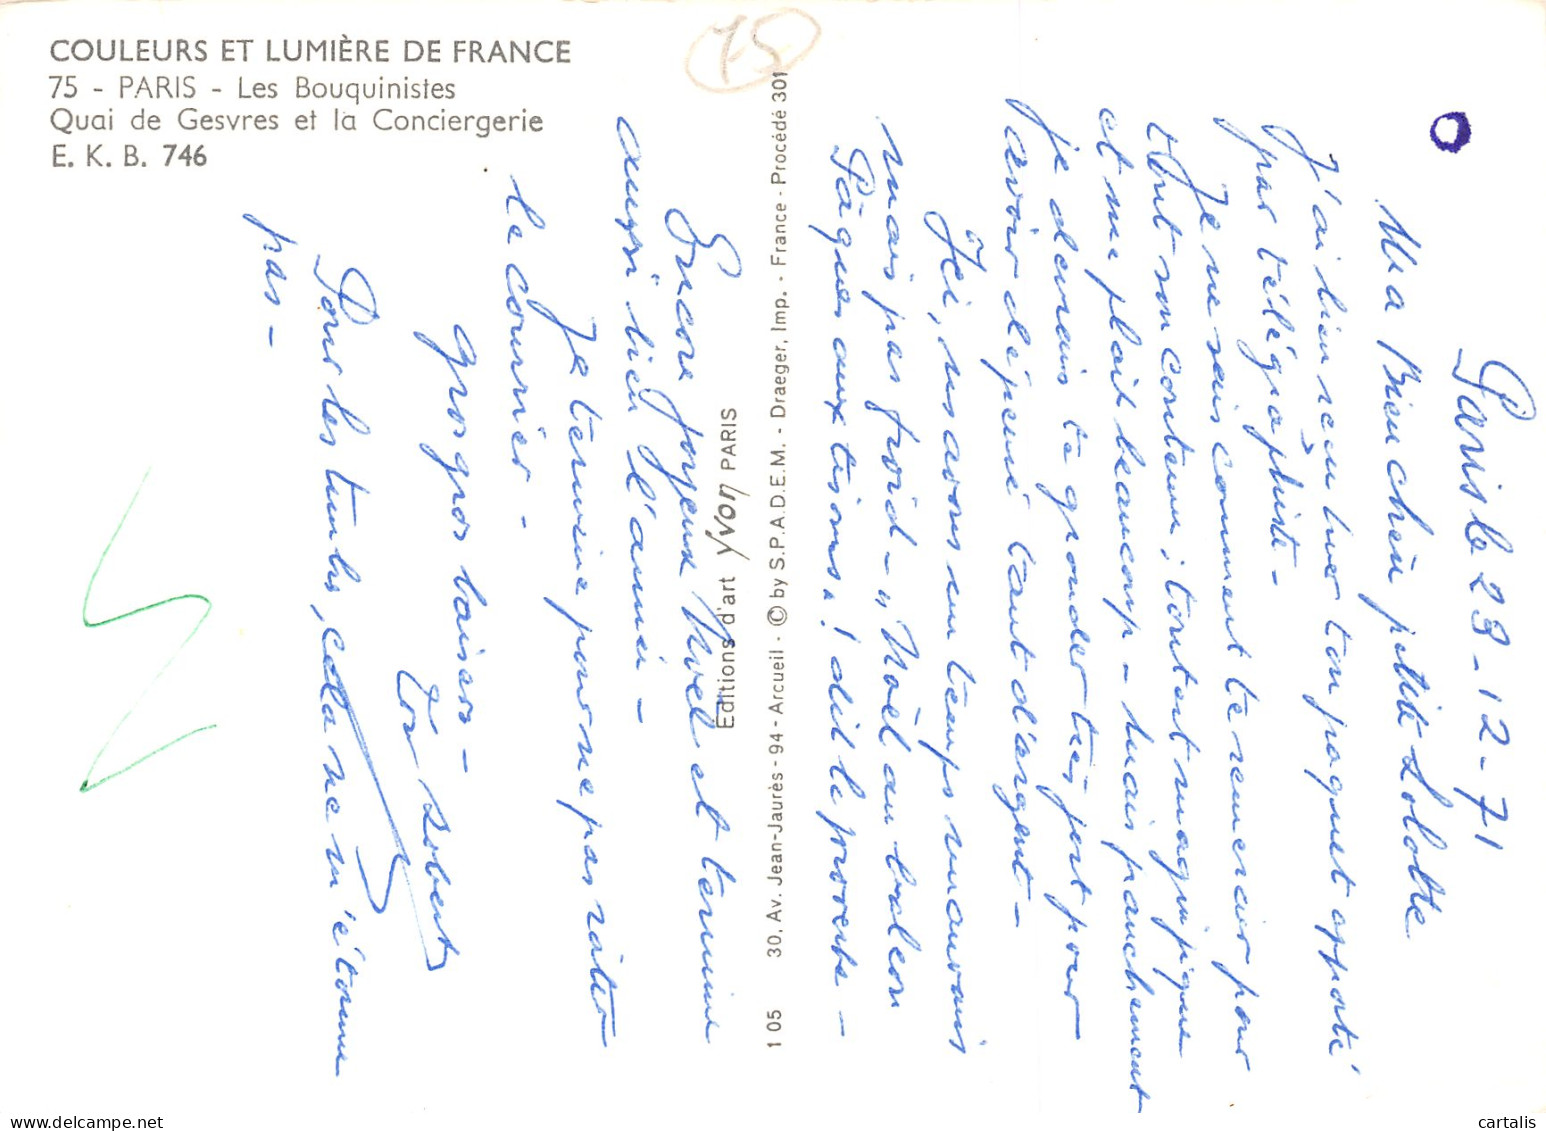 COULEURS ET LUMIÈRE DE FRANCE
75 - PARIS - Les Bouquinistes
Quai de Gesvres et la Conciergerie
E. K. B. 746
75
Éditions d'art Yvon PARIS
1 05 30, Av. Jean-Jaurès - 94 - Arcueil - © by S.P.A.D.E.M. - Draeger, Imp. - France - Procédé 301
Paris le 23-12-71
Ma Bien chère petite Lolotte
J'ai bien reçu hier ton paquet apporté
par télégraphiste -
Je ne sais comment te remercier pour
tout son contenu, tout est magnifique
et me plait beaucoup - mais franchement
je devrais te gronder très fort pour
avoir dépensé tant d'argent -
Ici, ns avons un temps mauvais
mais pas froid - "Noël au balcon
Pâques aux tisons"! dit le proverbe -
Encore joyeux Noël et termine
aussi bien l'année -
Je termine pour ne pas rater
le courrier -
gros gros baisers -
Ton Robert
Pour les timbres, cela ne m'étonne
pas -
cartalis